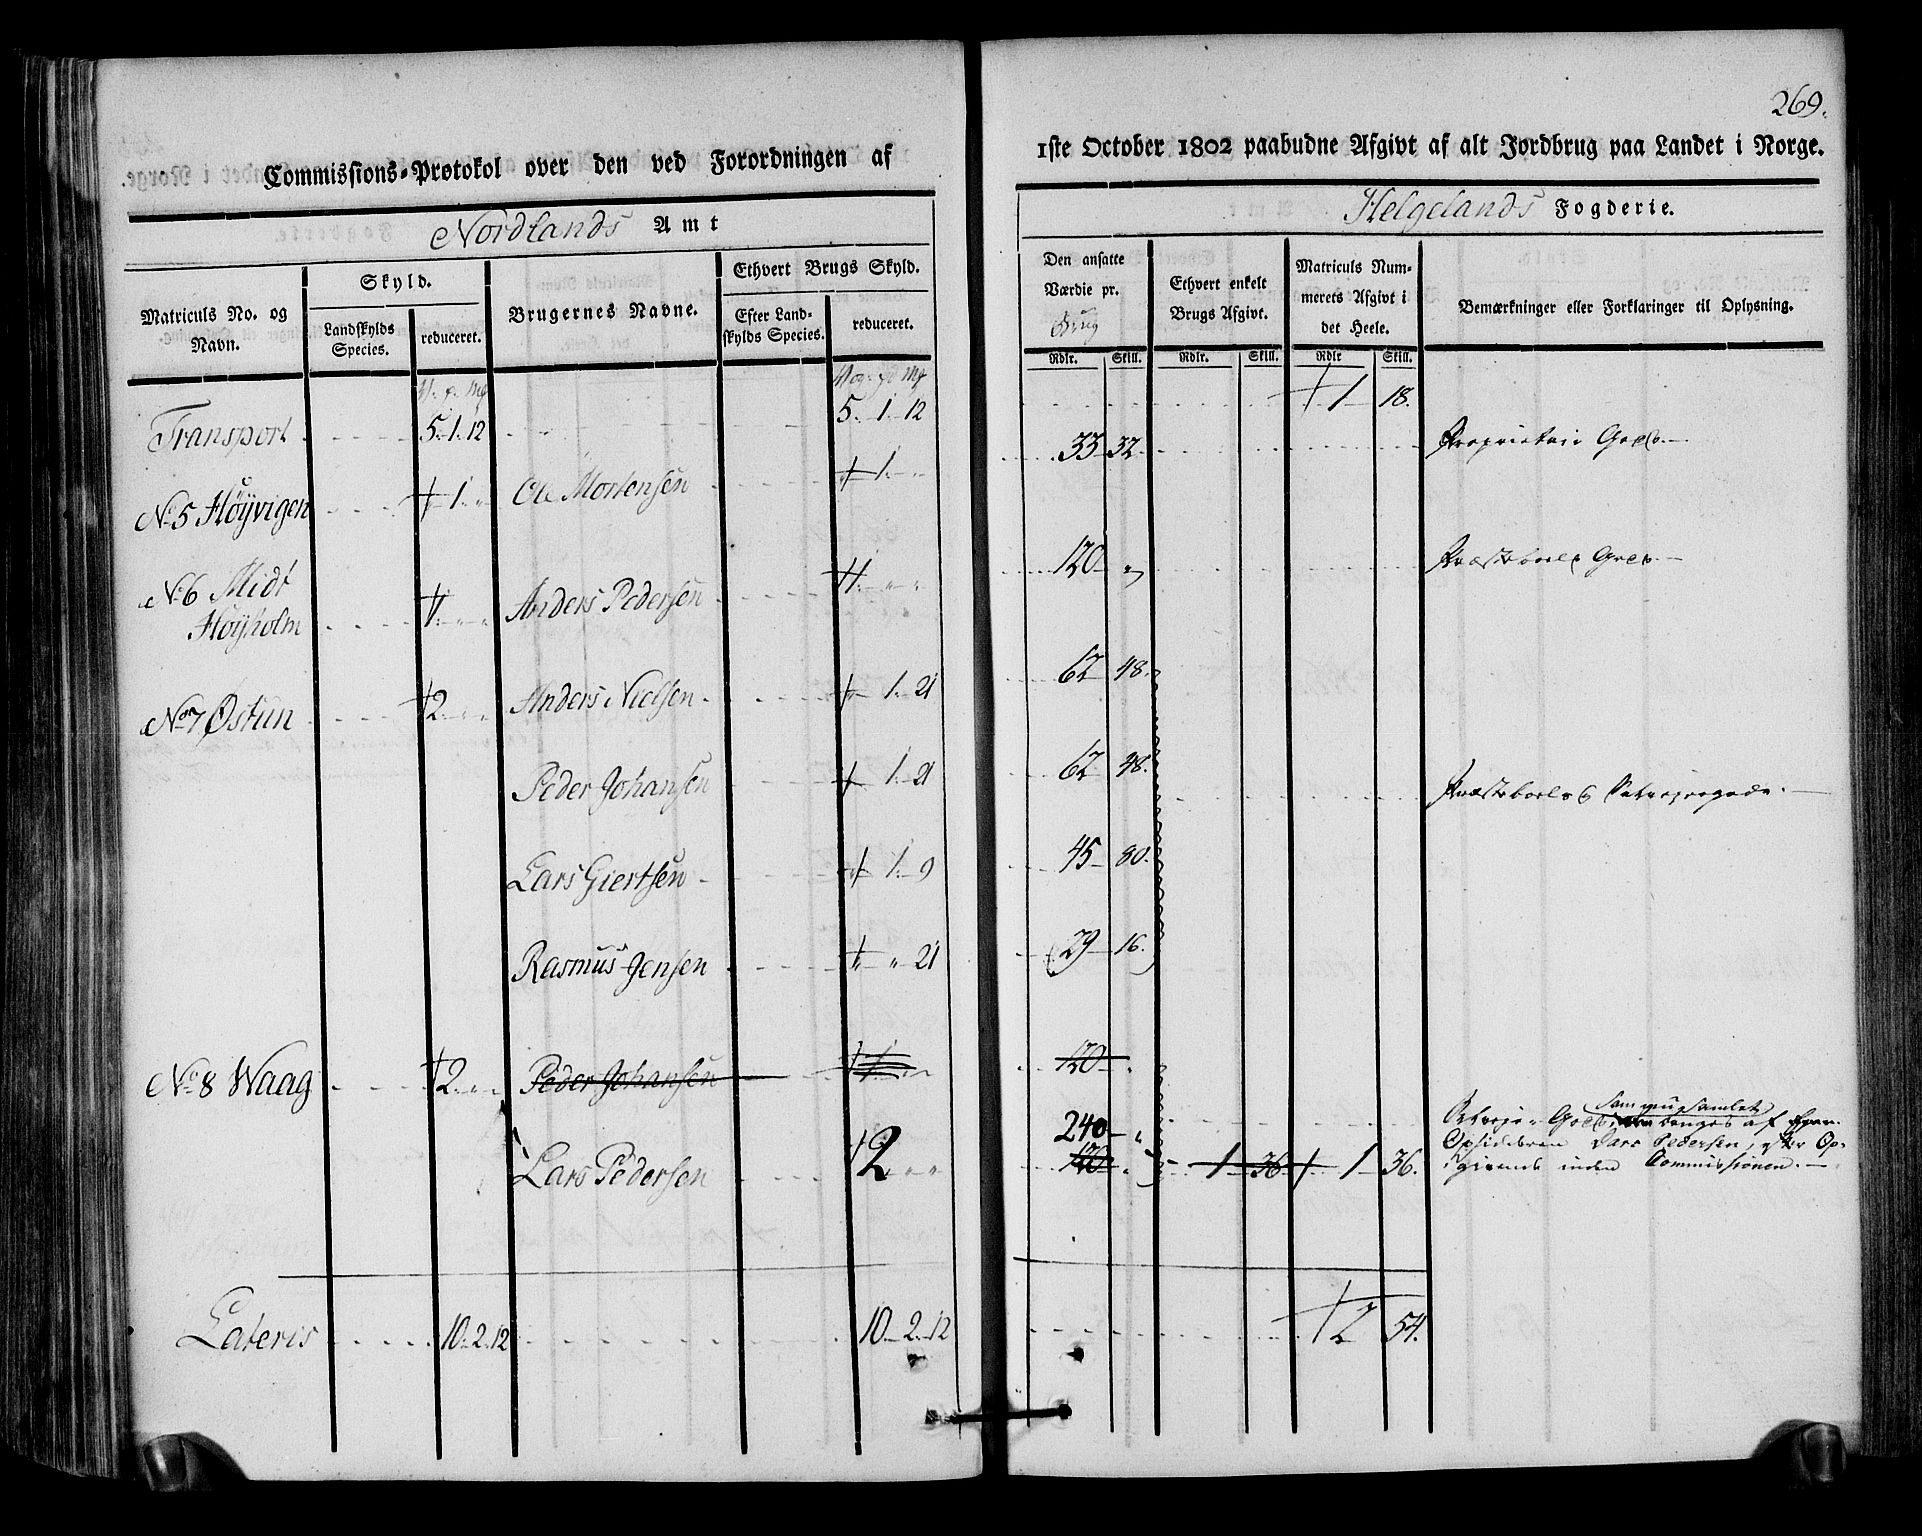 269.
Commissions-Protokol over den ved Forordningen af
1ste October 1802 paabudne Afgivt af alt Jordbrug paa Landet i Norge.
Nordlands Amt
Helgelands Fogderie.
Matriculs No. og Navn.
Skyld.
Landskylds Species.
reduceret.
Brugernes Navne.
Ethvert Brugs Skyld.
Efter Landskylds Species.
reduceret.
Den ansatte Værdie pr. Brug
Rdlr. Skill.
Ethvert enkelt Brugs Afgivt.
Rdlr. Skill.
Matriculs Nummerets Afgivt i det Heele.
Rdlr Skill.
Bemærkninger eller Forklaringer til Oplysning.
Transport 5. 1. 12 5. 1. 12 1 18.
No 5 Høyvigen 1. Ole Mortensen 1. 33 32 Proprietair Gods
No 6 Midt Høyholm 1. Anders Pedersen 1. 120 Præsteboels Gods
No 7 Østun 2. Anders Nielsen 1. 21 62 48.
Peder Johansen 1. 21 62 48. Præsteboels
Lars Giertsen 1. 9 45 80.
Rasmus Jensen 21 29 16.
No 8 Waag 2. Peder Johansen 1. 120
Lars Pedersen 2 240 120 1 36 1 36.
Lars Pedersen, efter Opgivende inden Commissionen.
Lateris 10. 2. 12 10. 2. 12 2 54.